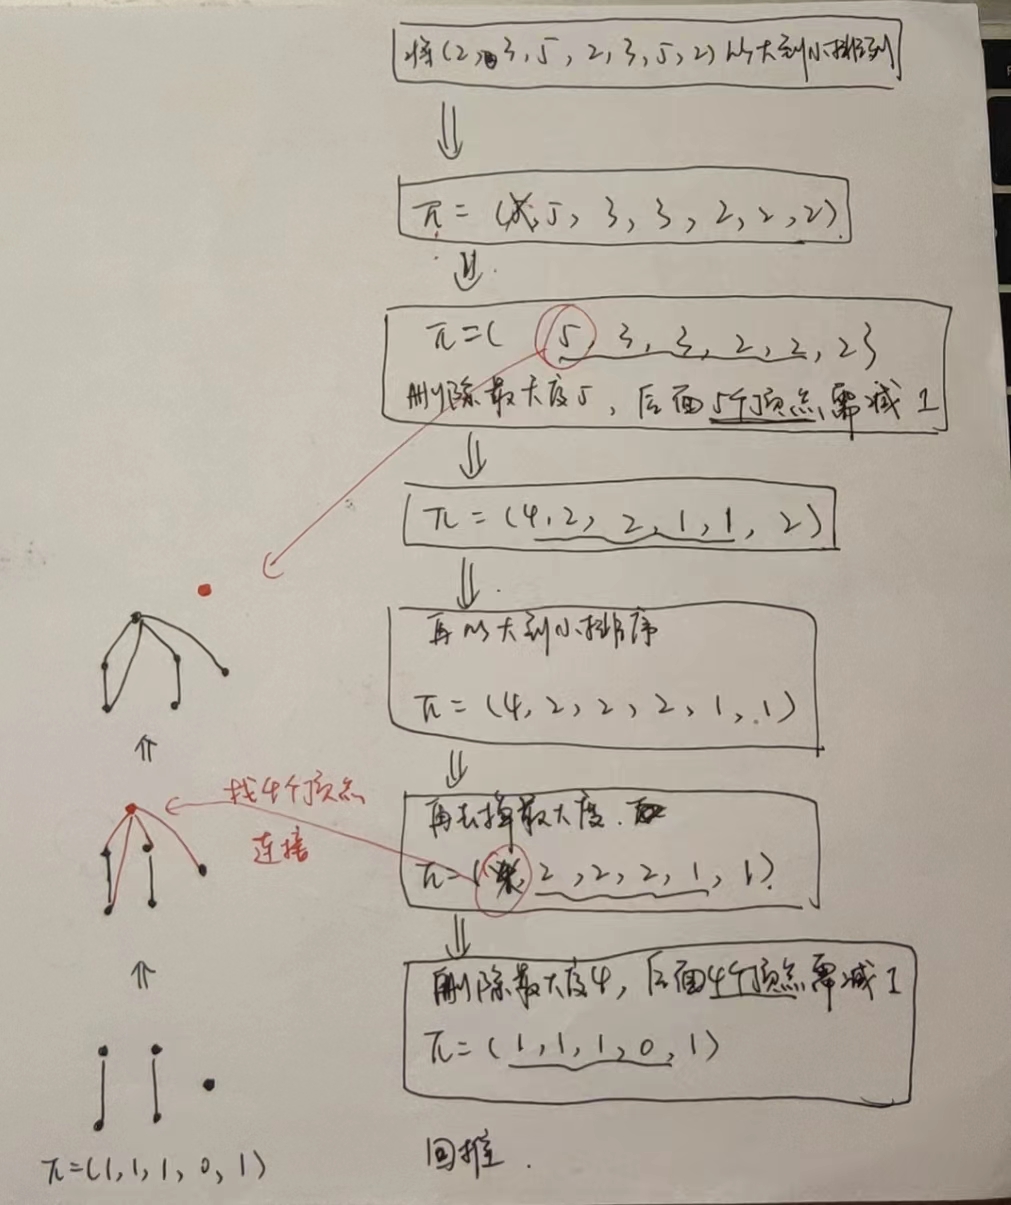 将(2,3,5,2,3,5,2)从大到小排列
π=(5,5,3,3,2,2,2)
π=( 5,3,3,2,2,2}
删除最大度5,后面5个顶点需减1
π=(4,2,2,1,1,2)
再从大到小排序
π=(4,2,2,2,1,1)
再去掉最大度.
π=( ,2,2,2,1,1)
找4个顶点
连接
删除最大度4,后面4个顶点需减1
π=(1,1,1,0,1)
π=(1,1,1,0,1)
回推.